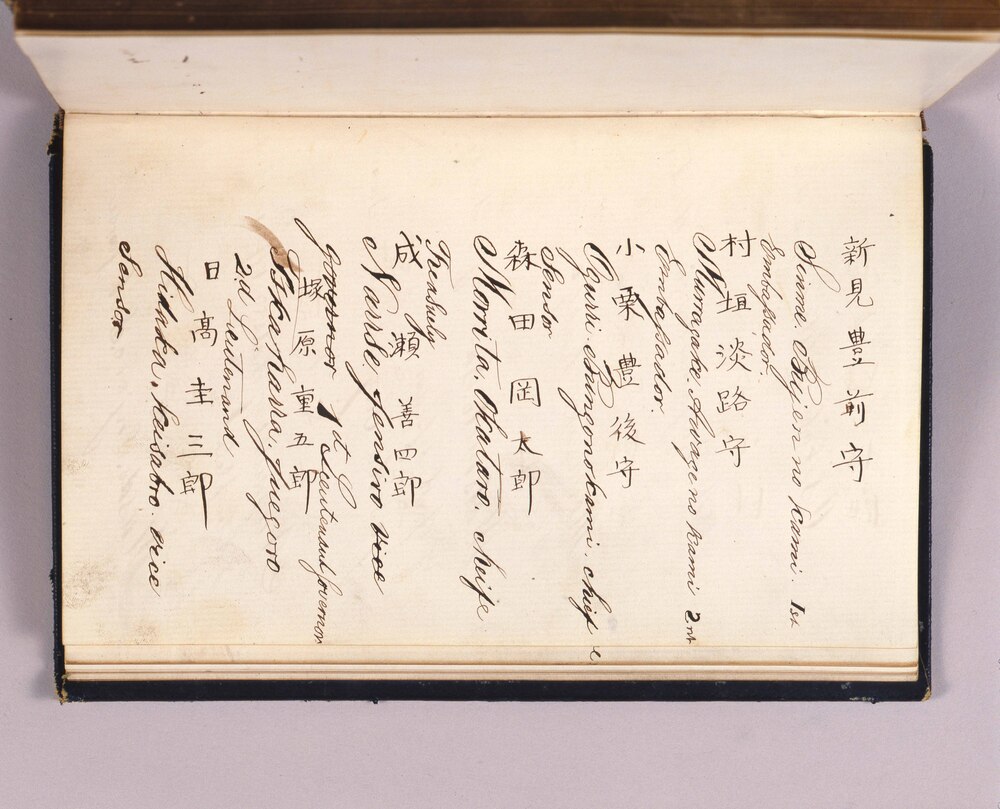 新見豊前守
Sinme. Bujen no Kami. 1st
Embassador.
村垣淡路守
Murragake. Awage no Kami 2nd
Embassador.
小栗豊後守
Oguri. Bungonokami. chief
Sensor
森田岡太郎
Morrita. Okataro. cheife
Treasuly
成瀬善四郎
Narrse. Jensiro vice
governor 1st Lieutenant governor
塚原重五郎
Skaharra. Juegoro
2d Lieutenand
日高圭三郎
Hitaka. Kaisabro. vice
Sensor